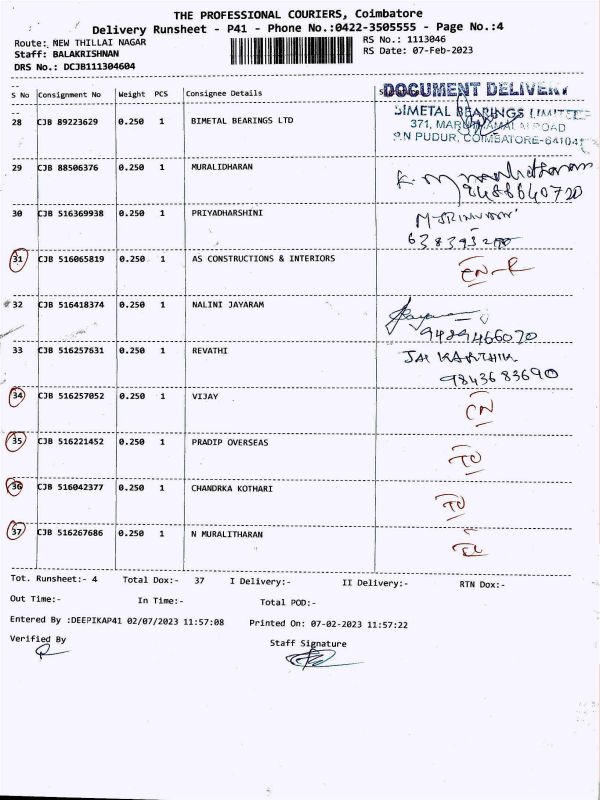 THE PROFESSIONAL COURIERS, Coimbatore
Delivery Runsheet - P41 - Phone No.:0422-3505555 - Page No.:4
Route: NEW THILLAI NAGAR RS No.: 1113046
Staff: BALAKRISHNAN RS Date: 07-Feb-2023
DRS No.: DCJB111304604
S No Consignment No Weight PCS Consignee Details
DOCUMENT DELIVERY
28 CJB 89223629 0.250 1 BIMETAL BEARINGS LTD
BIMETAL BEARINGS LIMITED
371, MARUDHAMALAI ROAD
P.N PUDUR, COIMBATORE-641041
29 CJB 88506376 0.250 1 MURALIDHARAN
9488640720
30 CJB 516369938 0.250 1 PRIYADHARSHINI
31 CJB 516065819 0.250 1 AS CONSTRUCTIONS & INTERIORS
32 CJB 516418374 0.250 1 NALINI JAYARAM
9489466070
33 CJB 516257631 0.250 1 REVATHI JAI KARTHIK
9843683690
34 CJB 516257052 0.250 1 VIJAY CN
35 CJB 516221452 0.250 1 PRADIP OVERSEAS
36 CJB 516042377 0.250 1 CHANDRKA KOTHARI
37 CJB 516267686 0.250 1 N MURALITHARAN
Tot. Runsheet:- 4 Total Dox:- 37 I Delivery:- II Delivery:- RTN Dox:-
Out Time:- In Time:- Total POD:-
Entered By :DEEPIKAP41 02/07/2023 11:57:08 Printed On: 07-02-2023 11:57:22
Verified By Staff Signature